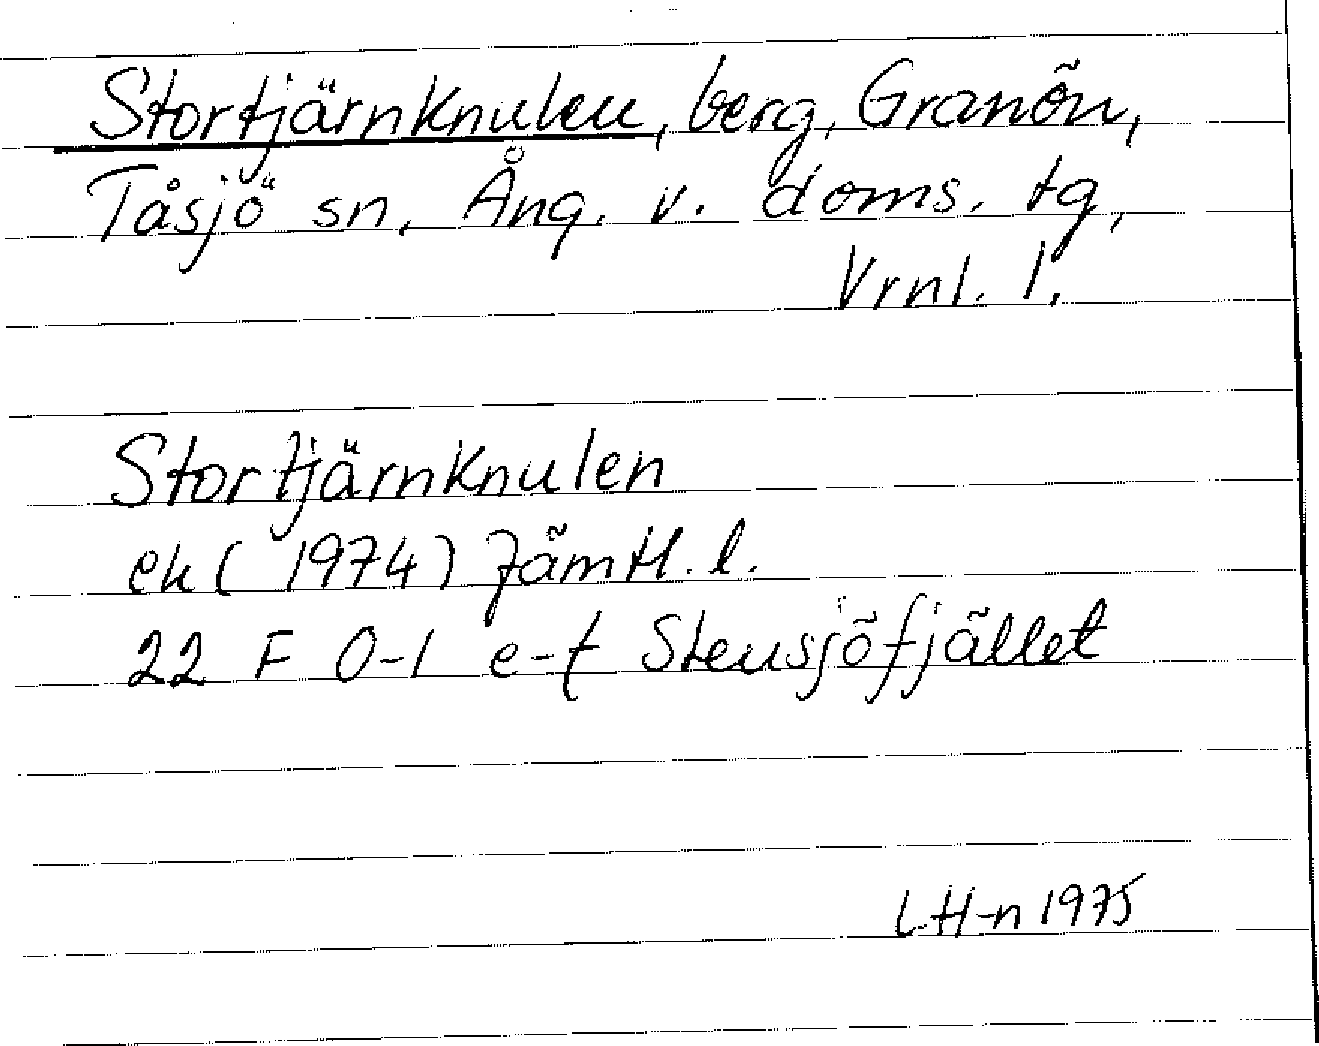 Stortjärnknulen, berg, Granön,
Tåsjö sn, Ång. v. doms. tg,
Vrnl. l.
Stortjärnknulen
ek (1974) Jämtl. l.
22 F 0-1 e-f Stensjöfjället
LH-n 1975